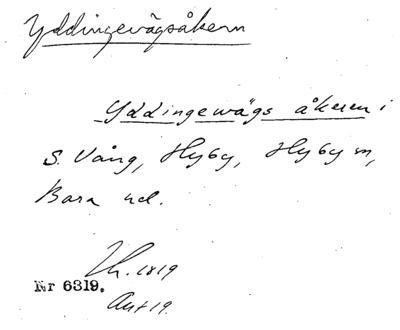 Yddingevägsåkern
Yddingewägs åkeren i
S. Vång, Hyby, Hyby sn,
Bara hd.
Lh. 1819
Nr 6319.
Akt 19.